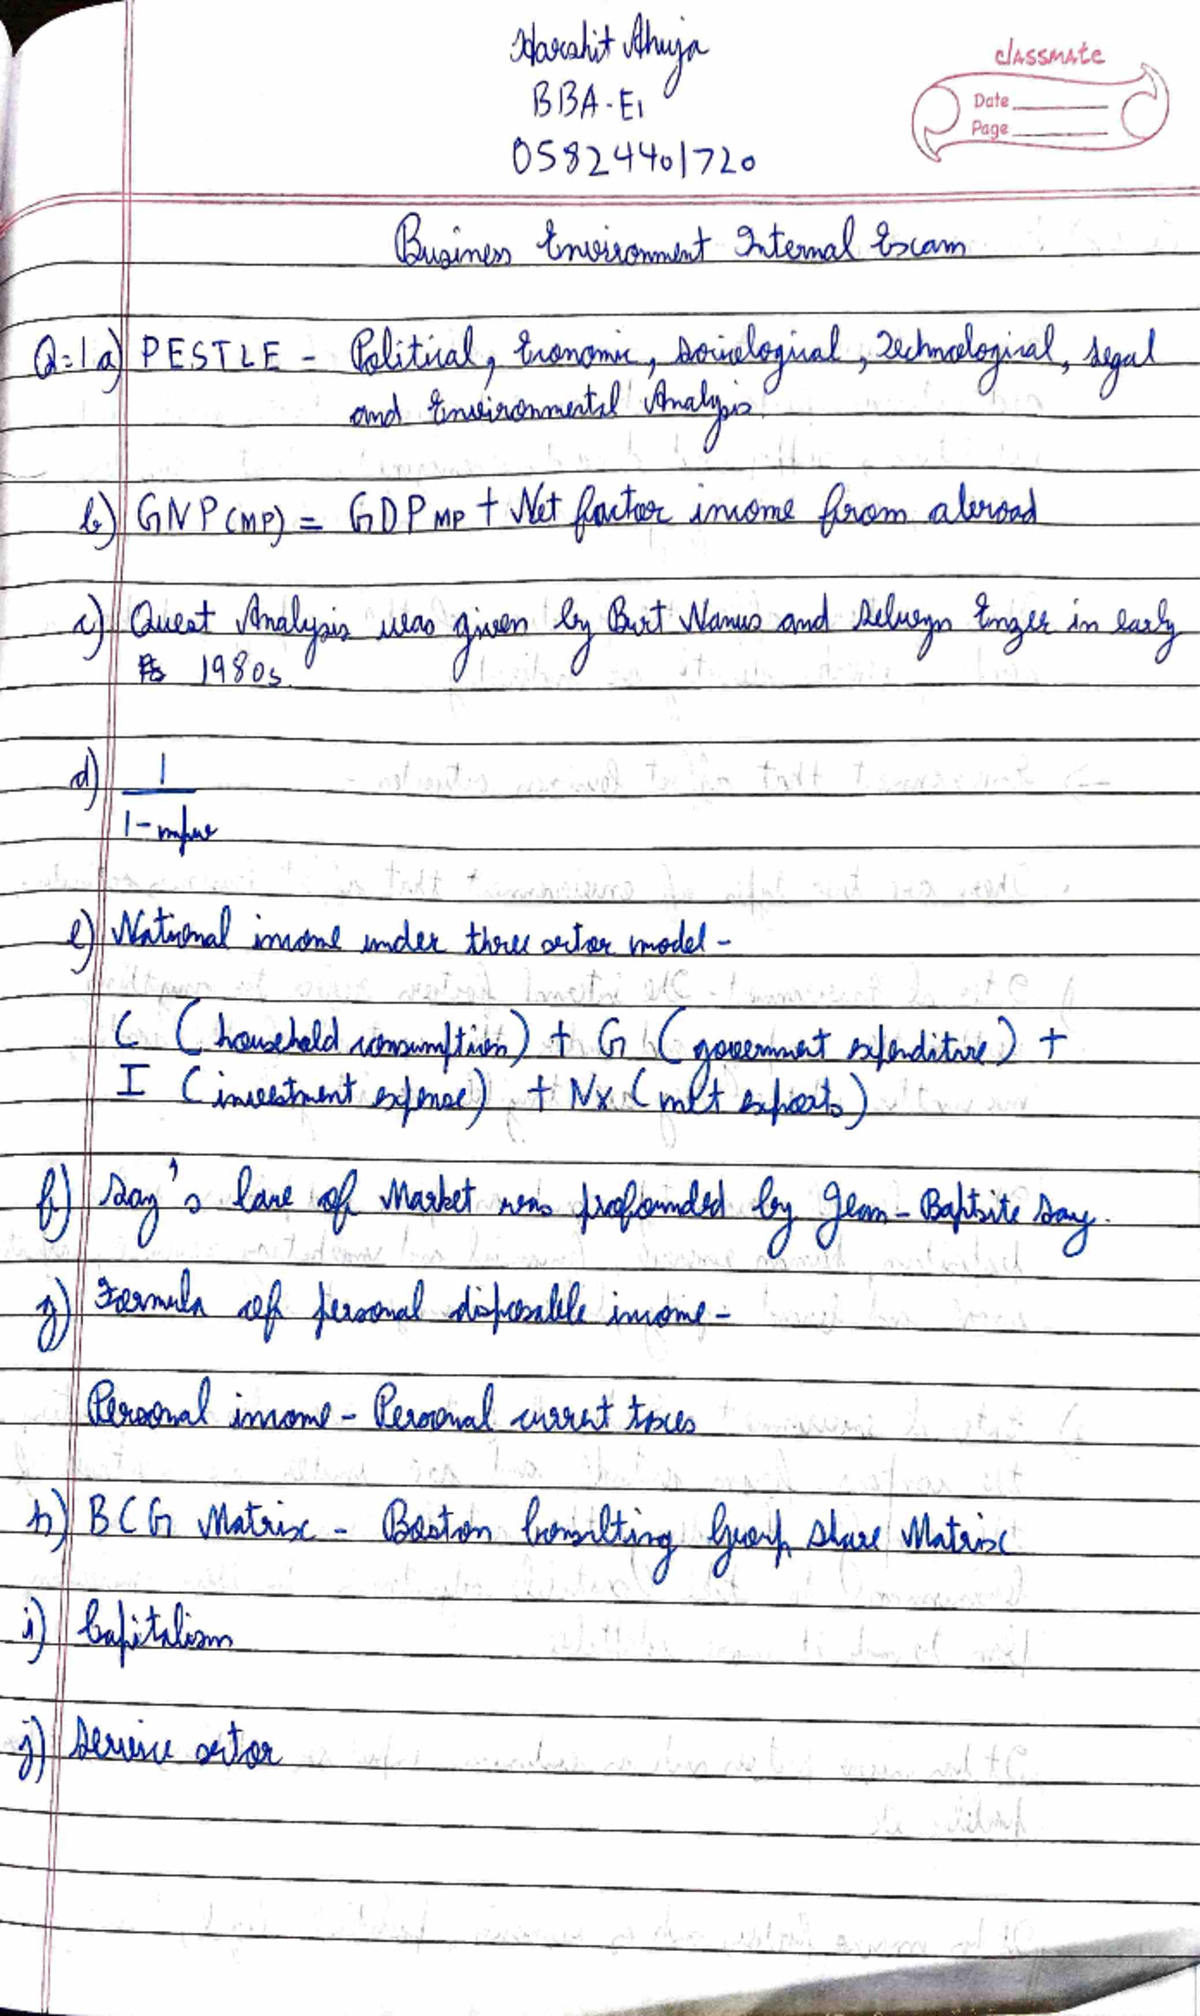 Harshit Ahuja
BBA-E1
05824401720
classmate
Date
Page
Business Environment Internal Exam
Q=1 a) PESTLE - Political, Economic, Sociological, Technological, Legal
and Environmental Analysis.
b) GNP(MP) = GDP MP + Net factor income from abroad
c) Quest Analysis was given by Burt Nanus and Selwyn Enzer in early
1980s.
d) 1
1-mpc
e) National income under three sector model -
C (household consumption) + G (government expenditure) +
I (investment expense) + Nx (net exports)
f) Say's law of Market was profounded by Jean-Baptsite Say.
g) Formula of personal disposable income -
Personal income - Personal current taxes
h) BCG Matrix - Boston Consulting Group Share Matrix
i) Capitalism
j) Service sector